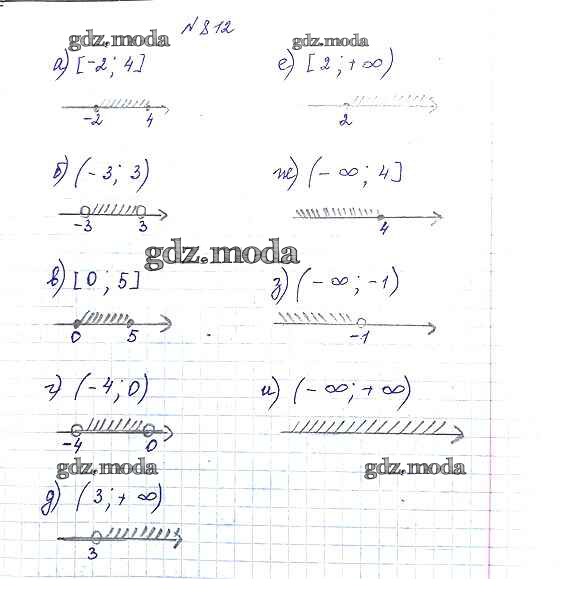 N 812
gdz.moda
gdz.moda
а) [-2; 4]
-2 4
б) (-3; 3)
-3 3
gdz.moda
в) [0; 5]
0 5
г) (-4; 0)
-4 0
gdz.moda
д) (3; +∞)
3
е) [2; +∞)
2
ж) (-∞; 4]
4
з) (-∞; -1)
-1
и) (-∞; +∞)
gdz.moda